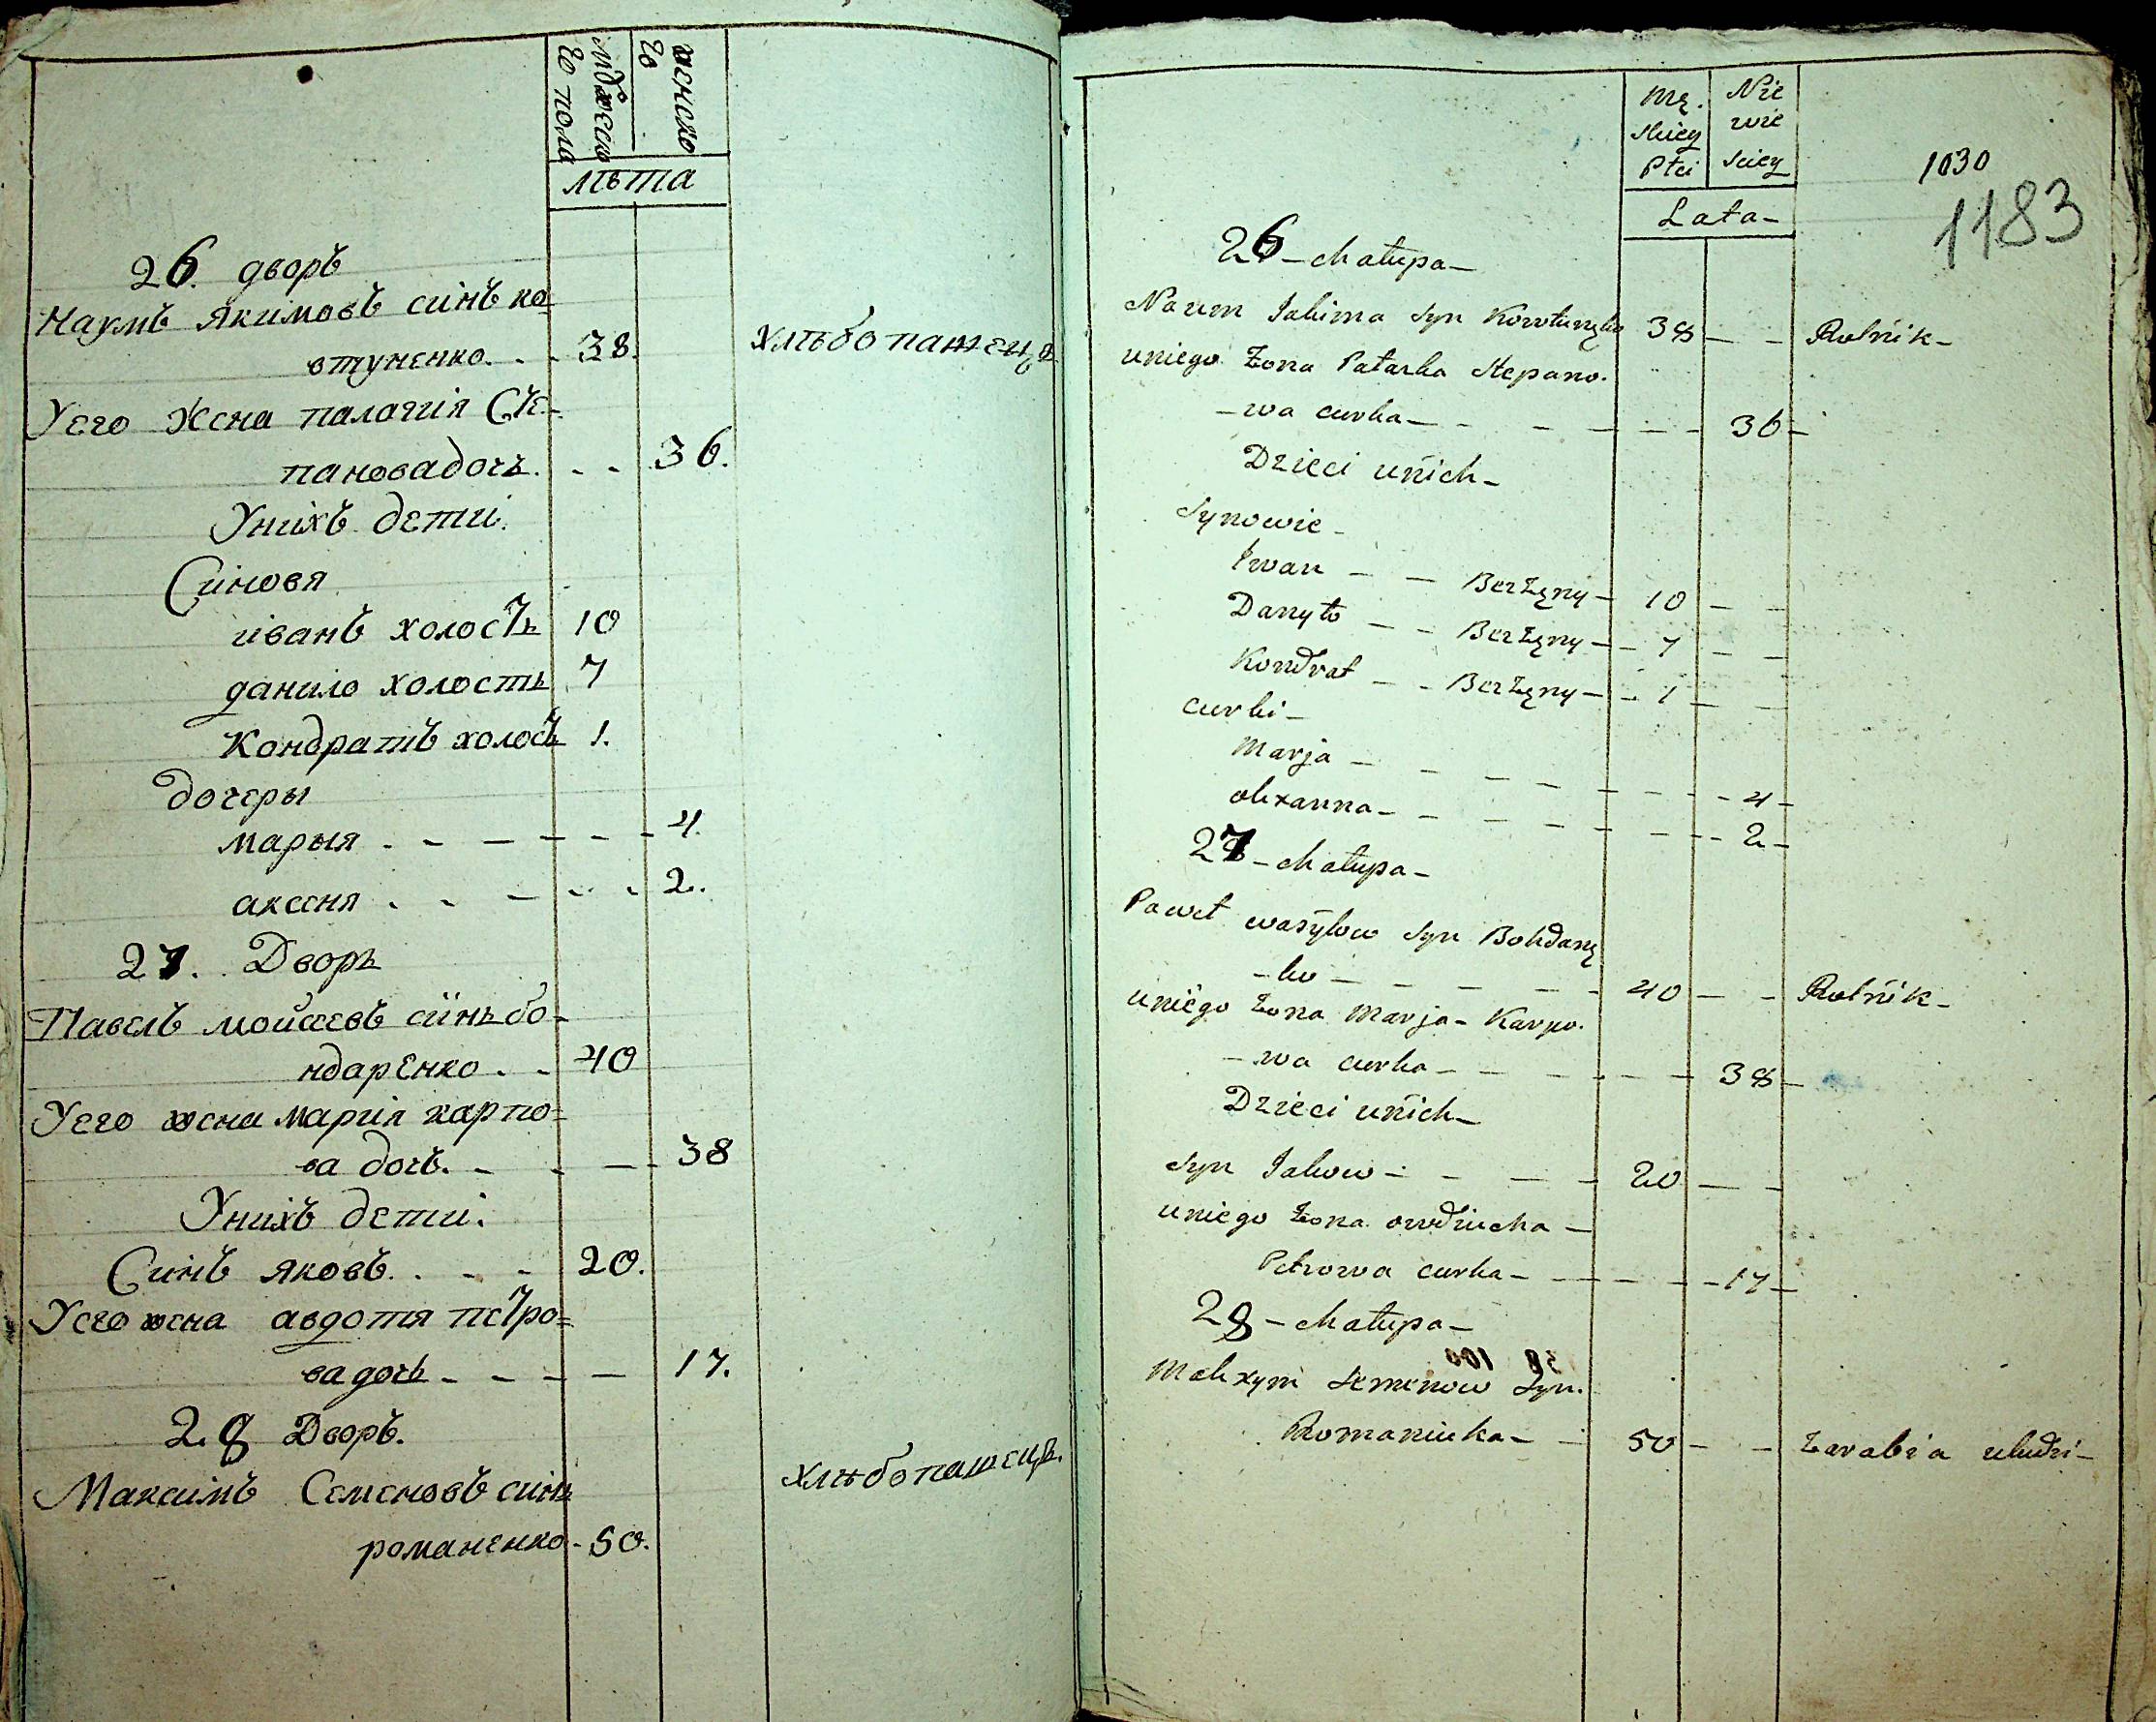 мужеско
го пола
женско
го
лѣта
26. дворъ
Наумъ Якимовъ синъ ко=
втуненко. . . 38. хлѣбопашецъ
Уего Жена палагія Сте-
пановадочъ. - - 36.
Унихъ дети.
Синовя
иванъ холостъ 10
данило холостъ 7
Кондратъ холостъ 1.
дочеры
марыя . - - - - - 4.
аксеня . - - - - 2.
27. Дворъ
Павелъ мойсеевъ синъ бо-
ндаренко . . 40
Уего жена марія карпо=
ва дочъ. - - - 38
Унихъ дети.
Синъ яковъ. . - - 20.
Уего жена авдотя петро=
ва дочь - - - - 17.
28 Дворъ.
Максимъ Семеновъ синъ хлѣбопашецъ.
романенко - 50.
Mę. Nie
skiey wie
Płci sciey
1030
1183
Lata-
26 - Chałupa -
Naum Jakima Syn Kowtunęko 38 - - Rolnik -
uniego Żona Pałaska Stepano-
- wa curka - - - - - 36 -
Dzieci unich -
Synowie -
Iwan - - Berżęny - 10 - -
Danyło - - Berżęny - - 7 - -
Kondrat - - Berżęny - - 1 - -
curki -
Marja - - - - - - - - 4 -
olexanna - - - - - - - 2 -
27 - Chałupa -
Paweł wasylow Syn Bohdanę
- ko - - - - - - 40 - - Rolnik -
uniego Żona Marja - Karpo-
- wa curka - - - - - - 38 -
Dzieci unich -
Syn Jakow - - - - - 20 - -
uniego Żona owdiucha -
Petrowa curka - - - - - 17 -
28 - Chałupa -
Mekxym Semenow Syn.
Romaniuka - - 50 - - Zarabia uludzi -